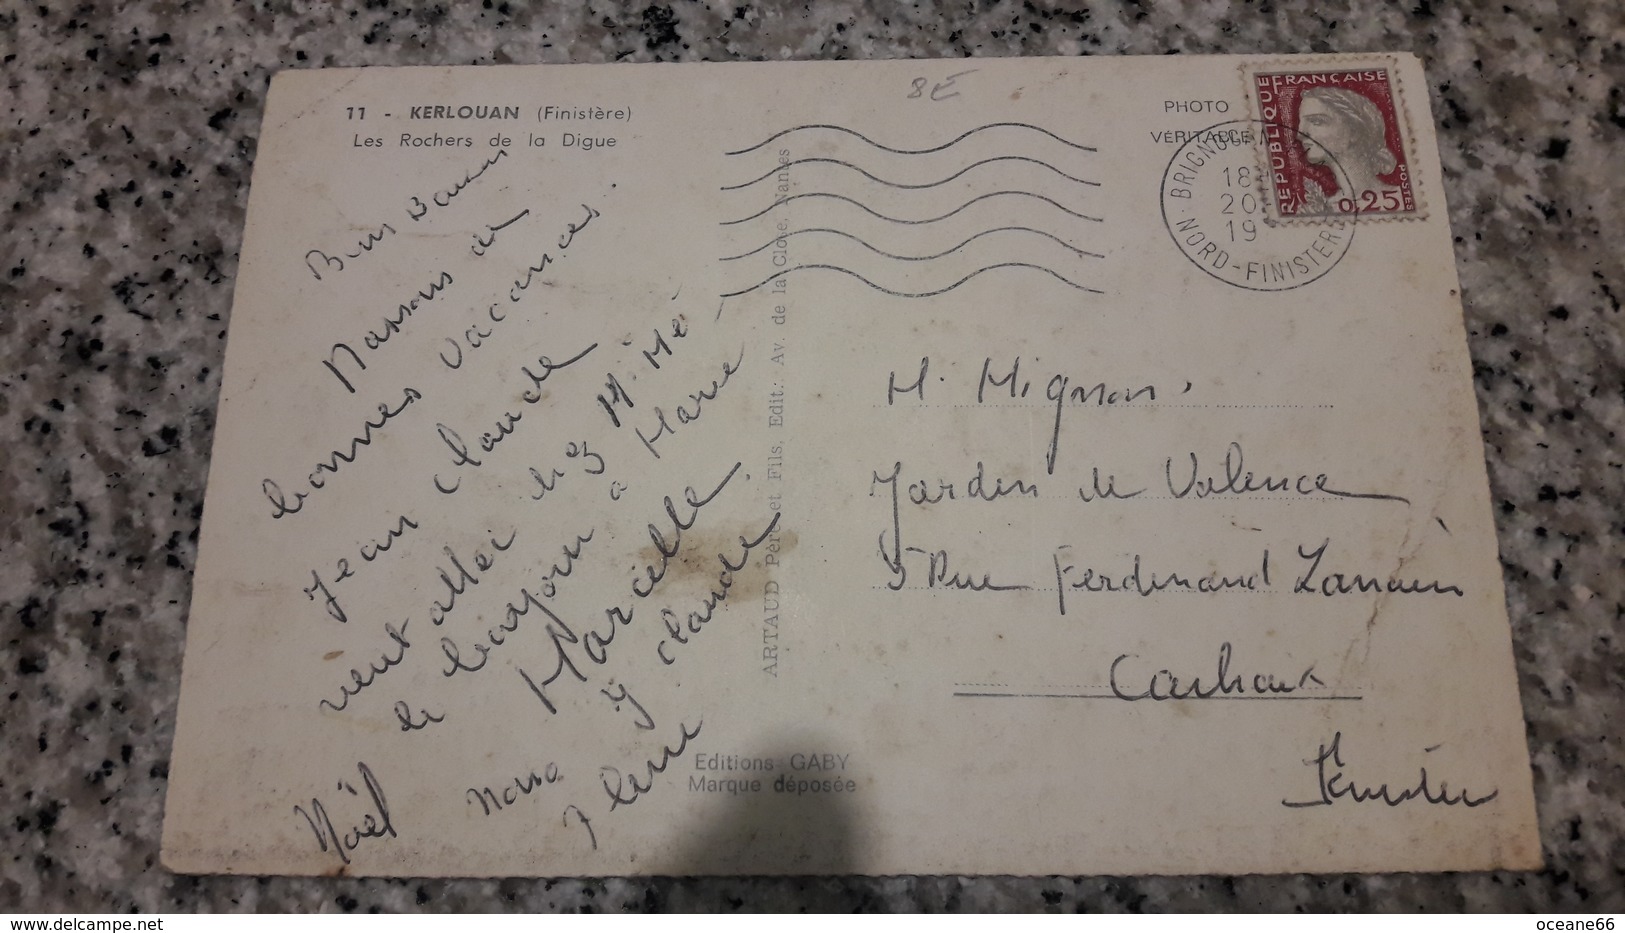 11 - KERLOUAN (Finistère)
Les Rochers de la Digue
8E
PHOTO
VÉRITABLE
RÉPUBLIQUE FRANÇAISE
POSTES
0,25
BRIGNOGAN
18
20
19
NORD-FINISTERE
Bons Baisers
Nassons de
bonnes vacances.
Jean Claude
vient allez chez M. Mé
le a Marie
Marcelle.
Noël J Claude
M. Mignon
Jardin de Valence
5 Rue Ferdinand
Carhaix
Finistère
ARTAUD Père et Fils, Edit.: Av. de la Gloire, Nantes
Editions GABY
Marque déposée
oceane66